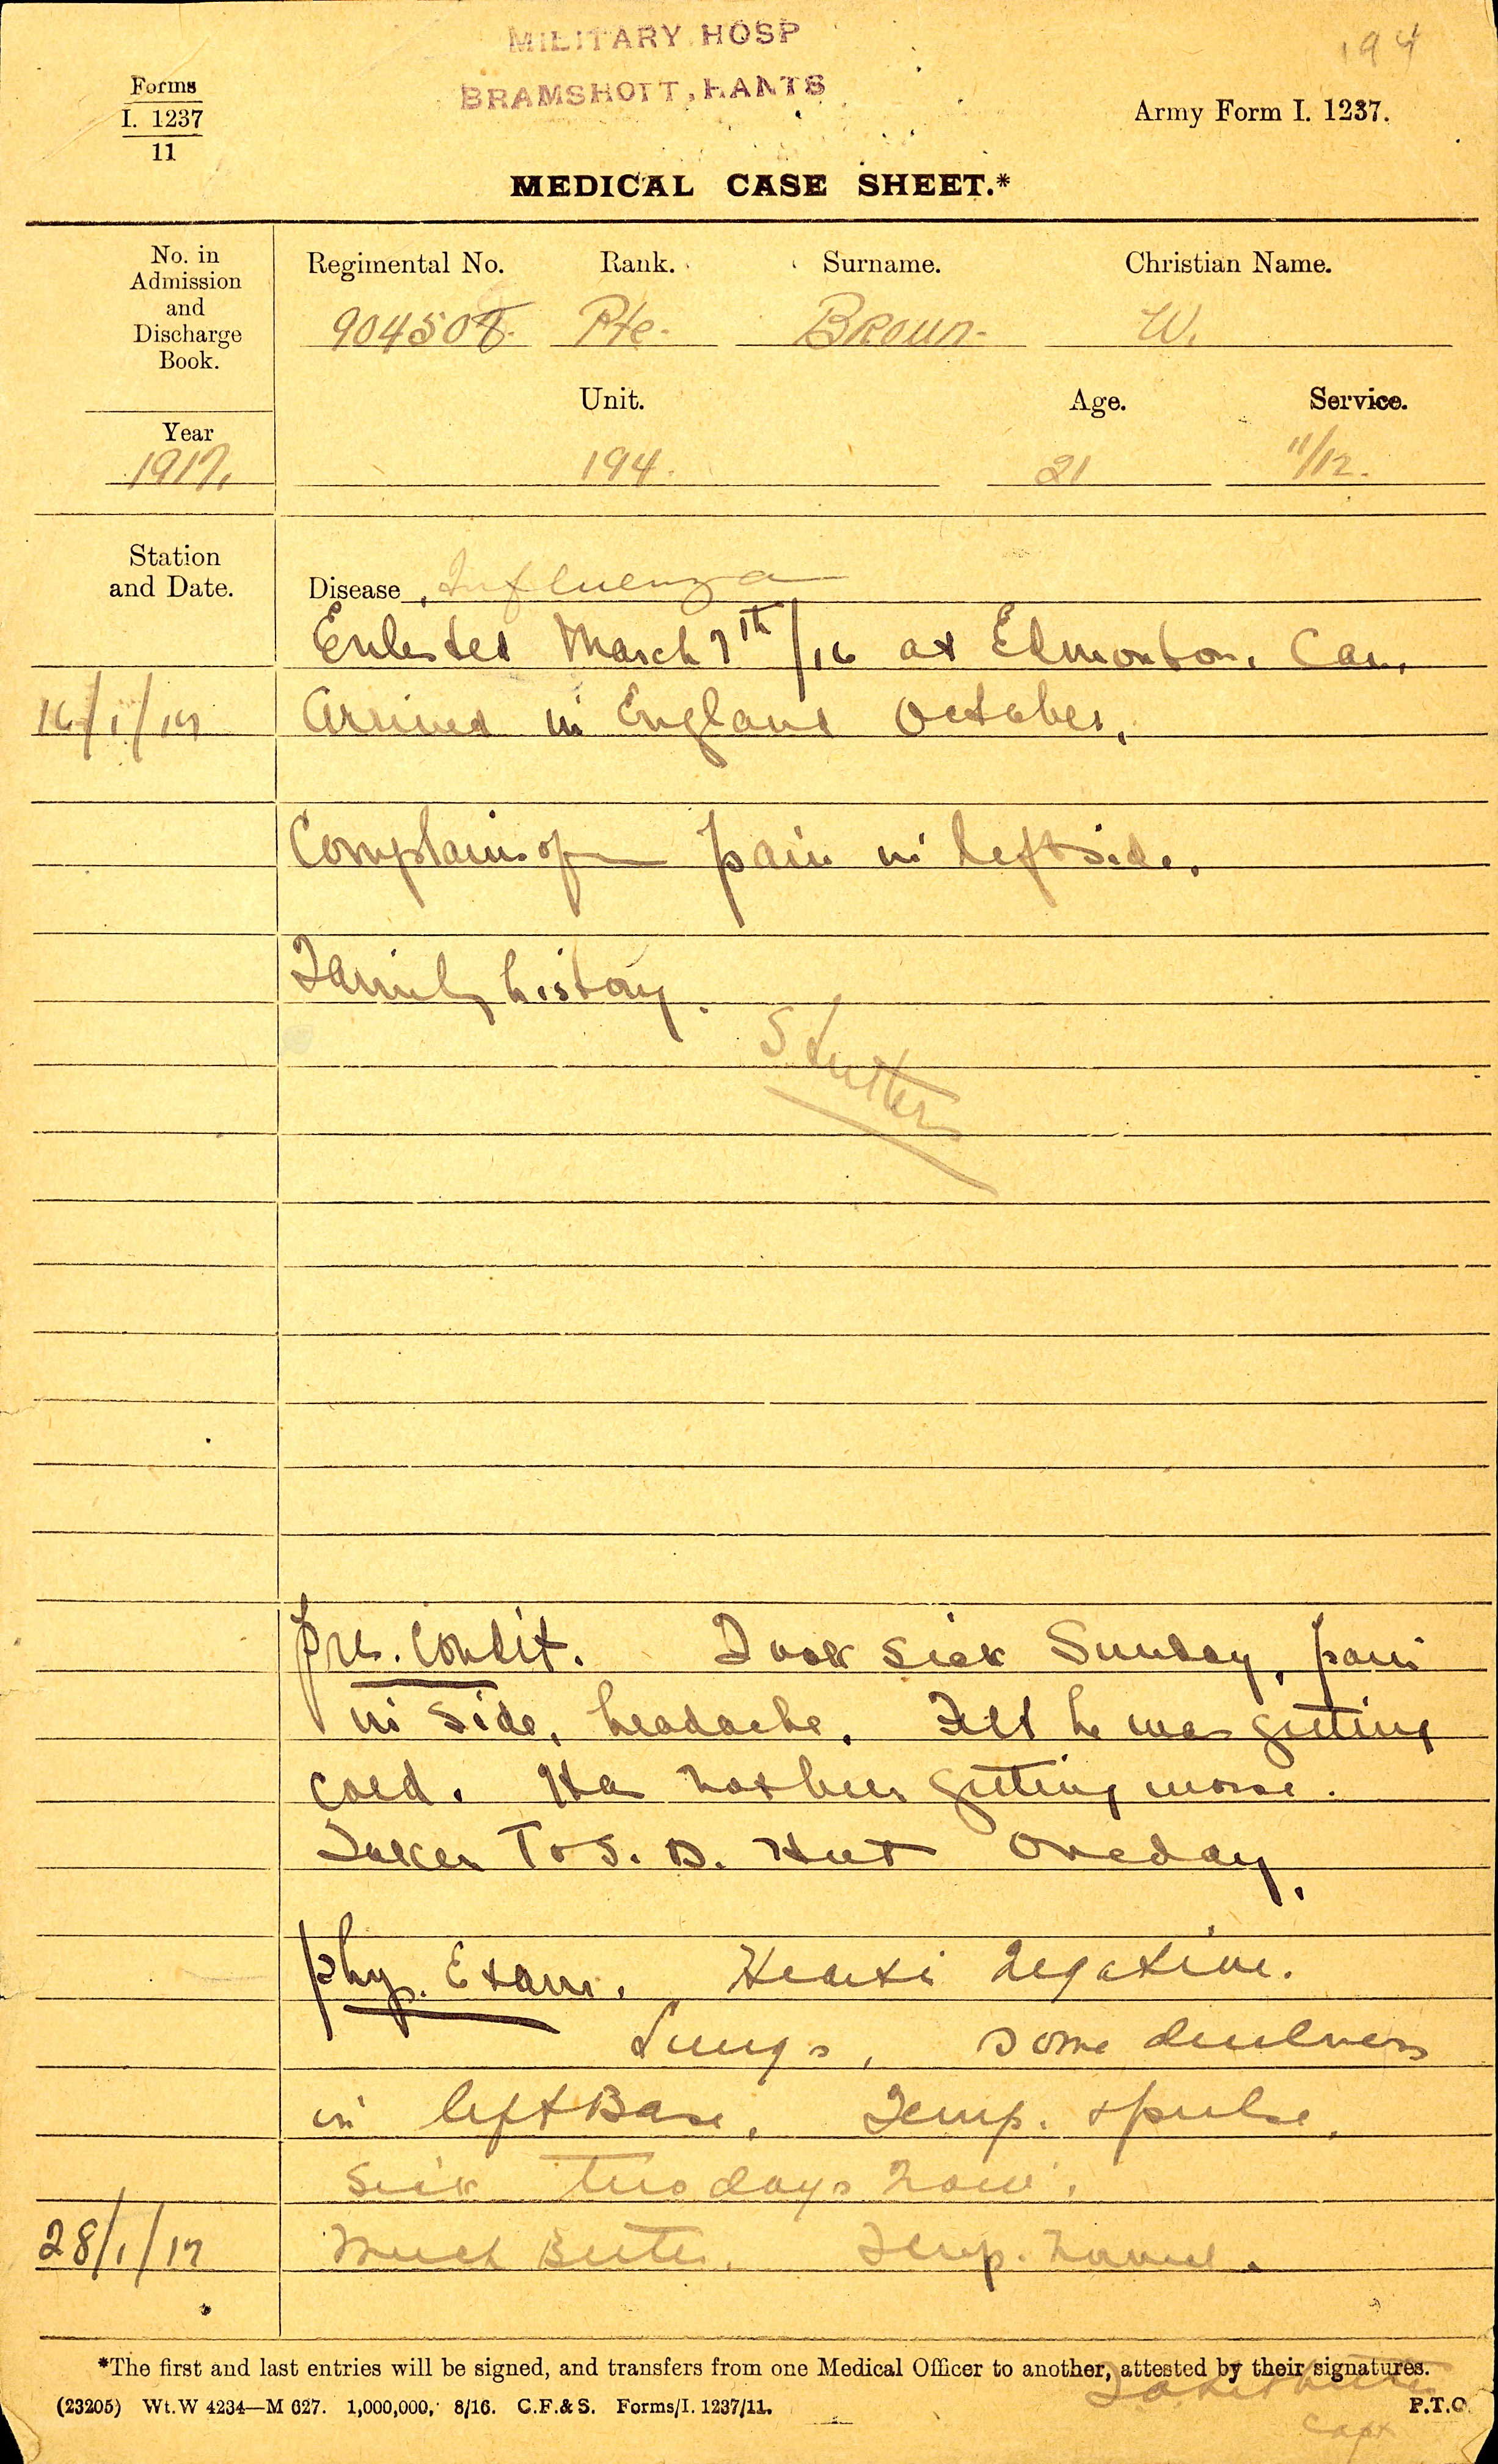 MILITARY HOSP
BRAMSHOTT, HANTS
194
Forms
I. 1237
11
Army Form I. 1237.
MEDICAL CASE SHEET.*
No. in
Admission
and
Discharge
Book.
Regimental No. Rank. Surname. Christian Name.
904508 Pte. Brown W.
Unit. Age. Service.
Year
1917. 194. 21 11/12.
Station
and Date.
Disease Influenza
Enlisted March 7th/16 at Edmonton, Can.
16/1/17 Arrived in England October.
Complains of pain in left side.
Family history.
Pres. Condit. Took sick Sunday, pain
in side, headache. Felt he was getting
cold. Has not been getting worse.
Taken to S. D. Hut one day.
Phy. Exam. Heart: negative.
Lungs, some dullness
in left Base. Temp. & pulse,
Sick two days now.
28/1/17 Much Better. Temp. normal.
*The first and last entries will be signed, and transfers from one Medical Officer to another, attested by their signatures.
(23205) Wt. W 4234—M 627. 1,000,000, 8/16. C.F.&S. Forms/I. 1237/11. P.T.O.
Capt